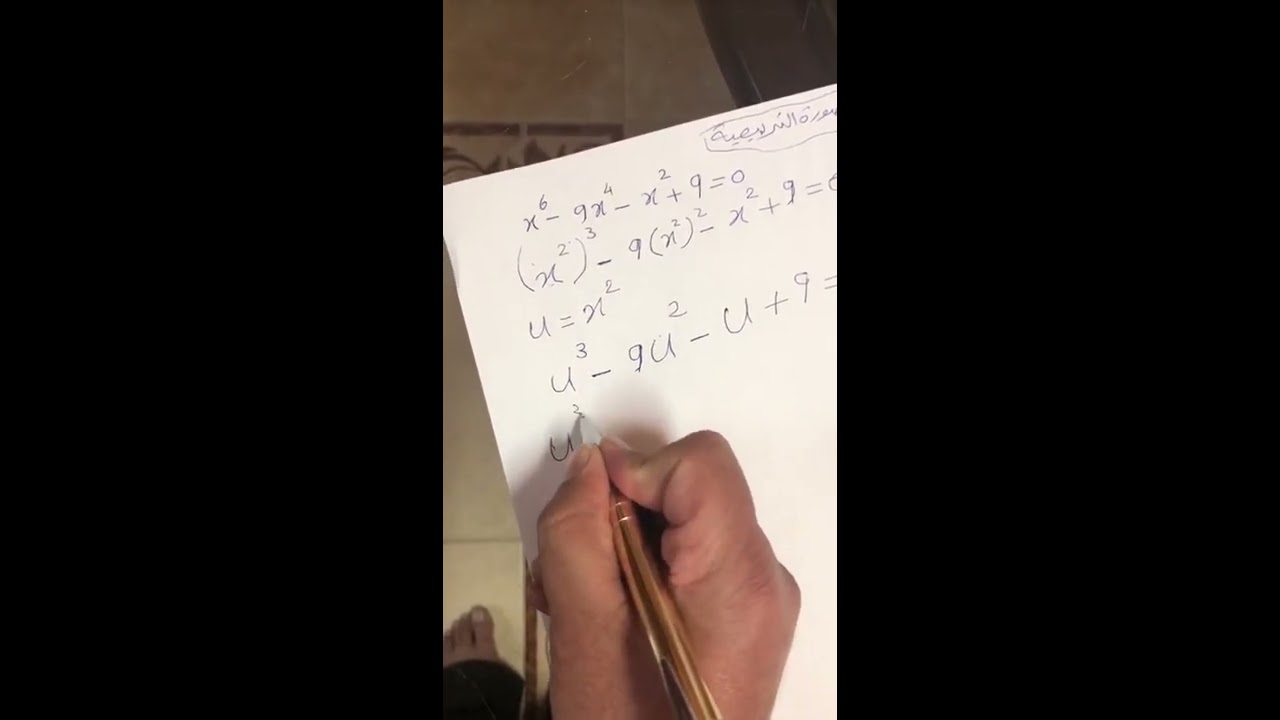 صورة التربيعية
x⁶ - 9x⁴ - x² + 9 = 0
(x²)³ - 9(x²)² - x² + 9 = 0
u = x²
u³ - 9u² - u + 9 =
u³